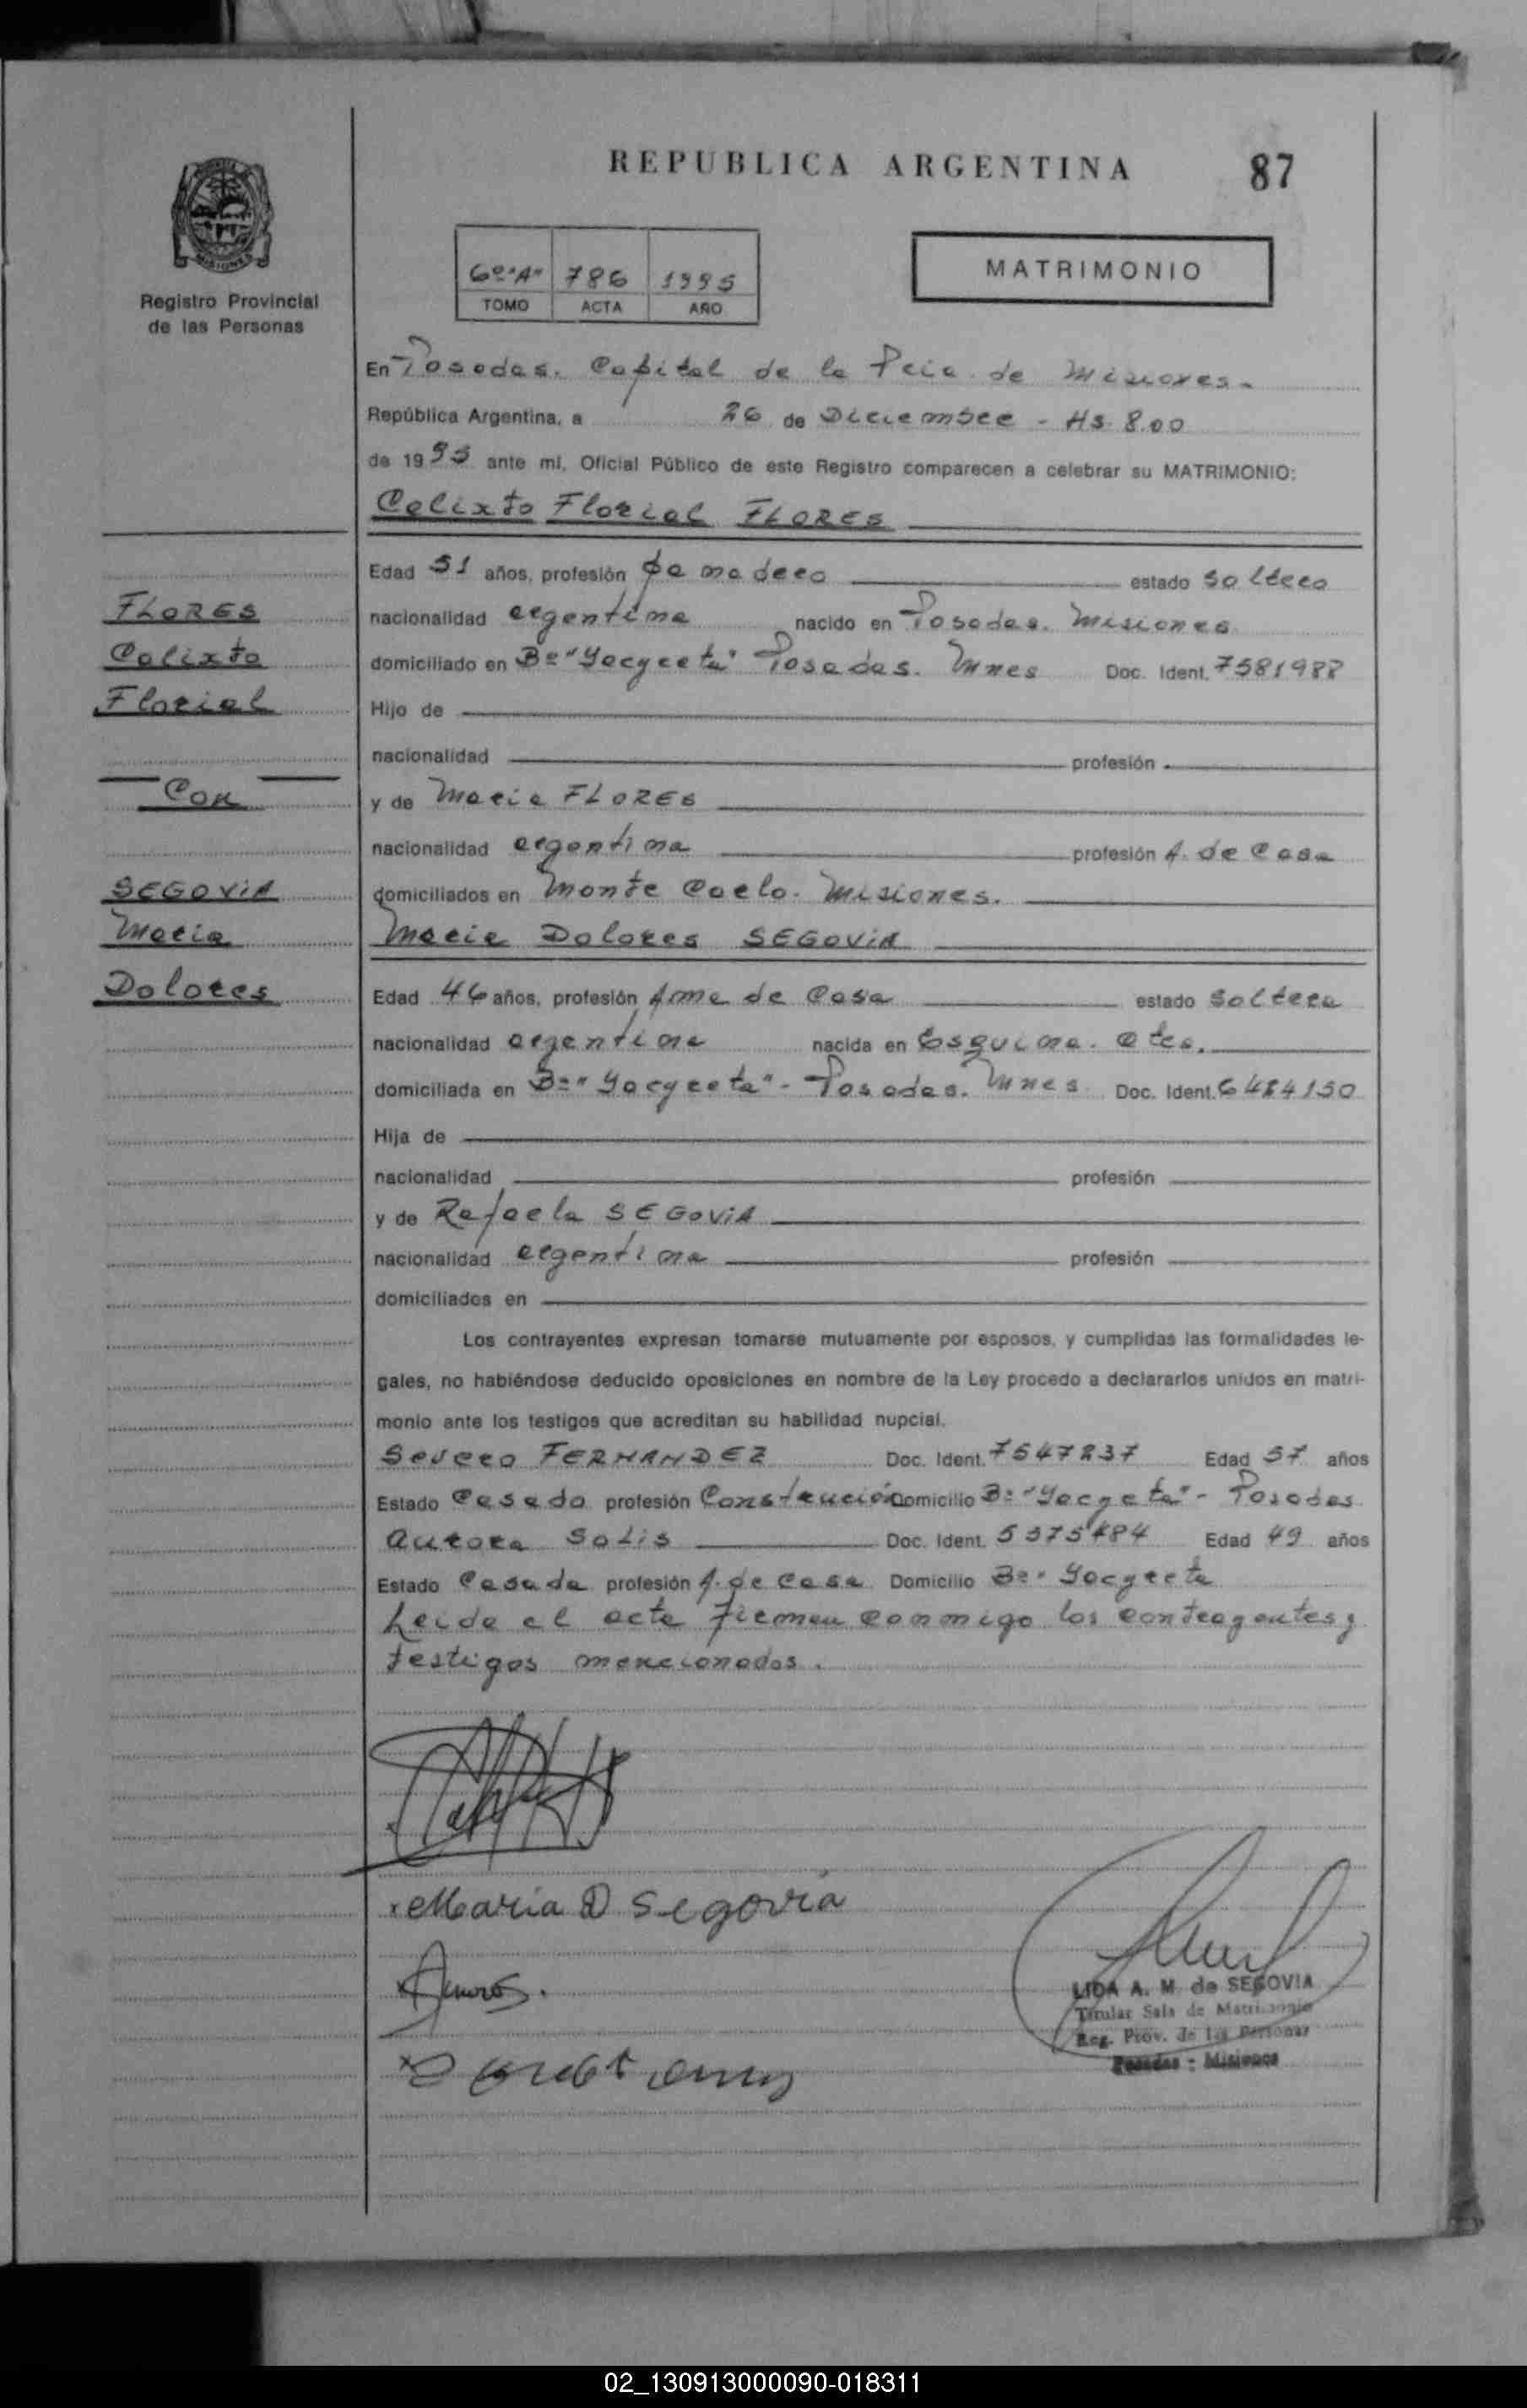 REPUBLICA ARGENTINA
87
MISIONES
Registro Provincial
de las Personas
6º "A" 786 1995
TOMO ACTA AÑO
MATRIMONIO
En Posadas. Capital de la Pcia de Misiones.
República Argentina, a 26 de Diciembre - Hs. 8.00
de 1995 ante mi, Oficial Público de este Registro comparecen a celebrar su MATRIMONIO:
Calixto Florial FLORES
Edad 51 años, profesión panadero estado soltero
nacionalidad argentina nacido en Posadas. Misiones
domiciliado en Bº "Yacyreta" Posadas. Mnes Doc. Ident. 7581988
Hijo de
nacionalidad profesión
y de Maria FLORES
nacionalidad argentina profesión A. de Casa
domiciliados en Monte Caelo. Misiones.
Maria Dolores SEGOVIA
Edad 46 años, profesión Ama de Casa estado soltera
nacionalidad argentina nacida en Esquina. Ctes.
domiciliada en Bº "Yacyreta" - Posadas. Mnes Doc. Ident. 6484150
Hija de
nacionalidad profesión
y de Rafaela SEGOVIA
nacionalidad argentina profesión
domiciliados en
Los contrayentes expresan tomarse mutuamente por esposos, y cumplidas las formalidades le-
gales, no habiéndose deducido oposiciones en nombre de la Ley procedo a declararlos unidos en matri-
monio ante los testigos que acreditan su habilidad nupcial.
Severo FERNANDEZ Doc. Ident. 7547837 Edad 57 años
Estado Casado profesión Construción Domicilio Bº "Yacyeta" - Posadas
Aurora SOLIS Doc. Ident. 5375484 Edad 49 años
Estado Casada profesión A. de Casa Domicilio Bº " Yacyreta
Leida el acta firman conmigo los contrayentes y
testigos mencionados.
FLORES
Calixto
Florial
Con
SEGOVIA
Maria
Dolores
Maria D Segovia
LIDA A. M. de SEGOVIA
Titular Sala de Matrimonio
Reg. Prov. de las Personas
Posadas - Misiones
02_130913000090-018311